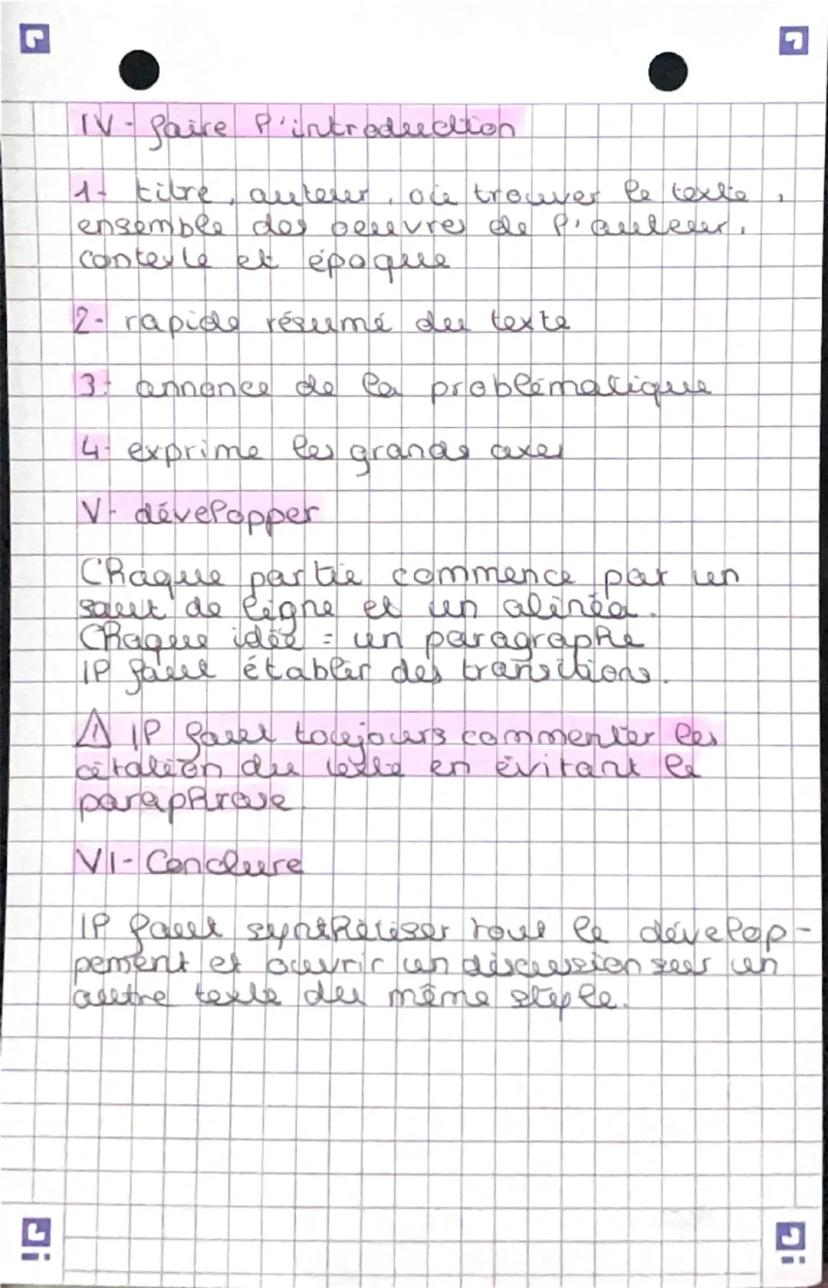 IV- faire l'introduction
1- titre, auteur, où trouver le texte,
ensemble des oeuvres de l'auteur,
contexte et époque
2- rapide résumé du texte
3- annonce de la problématique
4- exprime les grands axes
V- développer
Chaque partie commence par un
saut de ligne et un alinéa.
Chaque idée = un paragraphe
Il faut établir des transitions.
⚠ Il faut toujours commenter les
citation du texte en évitant le
paraphrase
VI- Conclure
Il faut synthétiser tout le dévelop-
pement et ouvrir un discussion sur un
autre texte du même style.